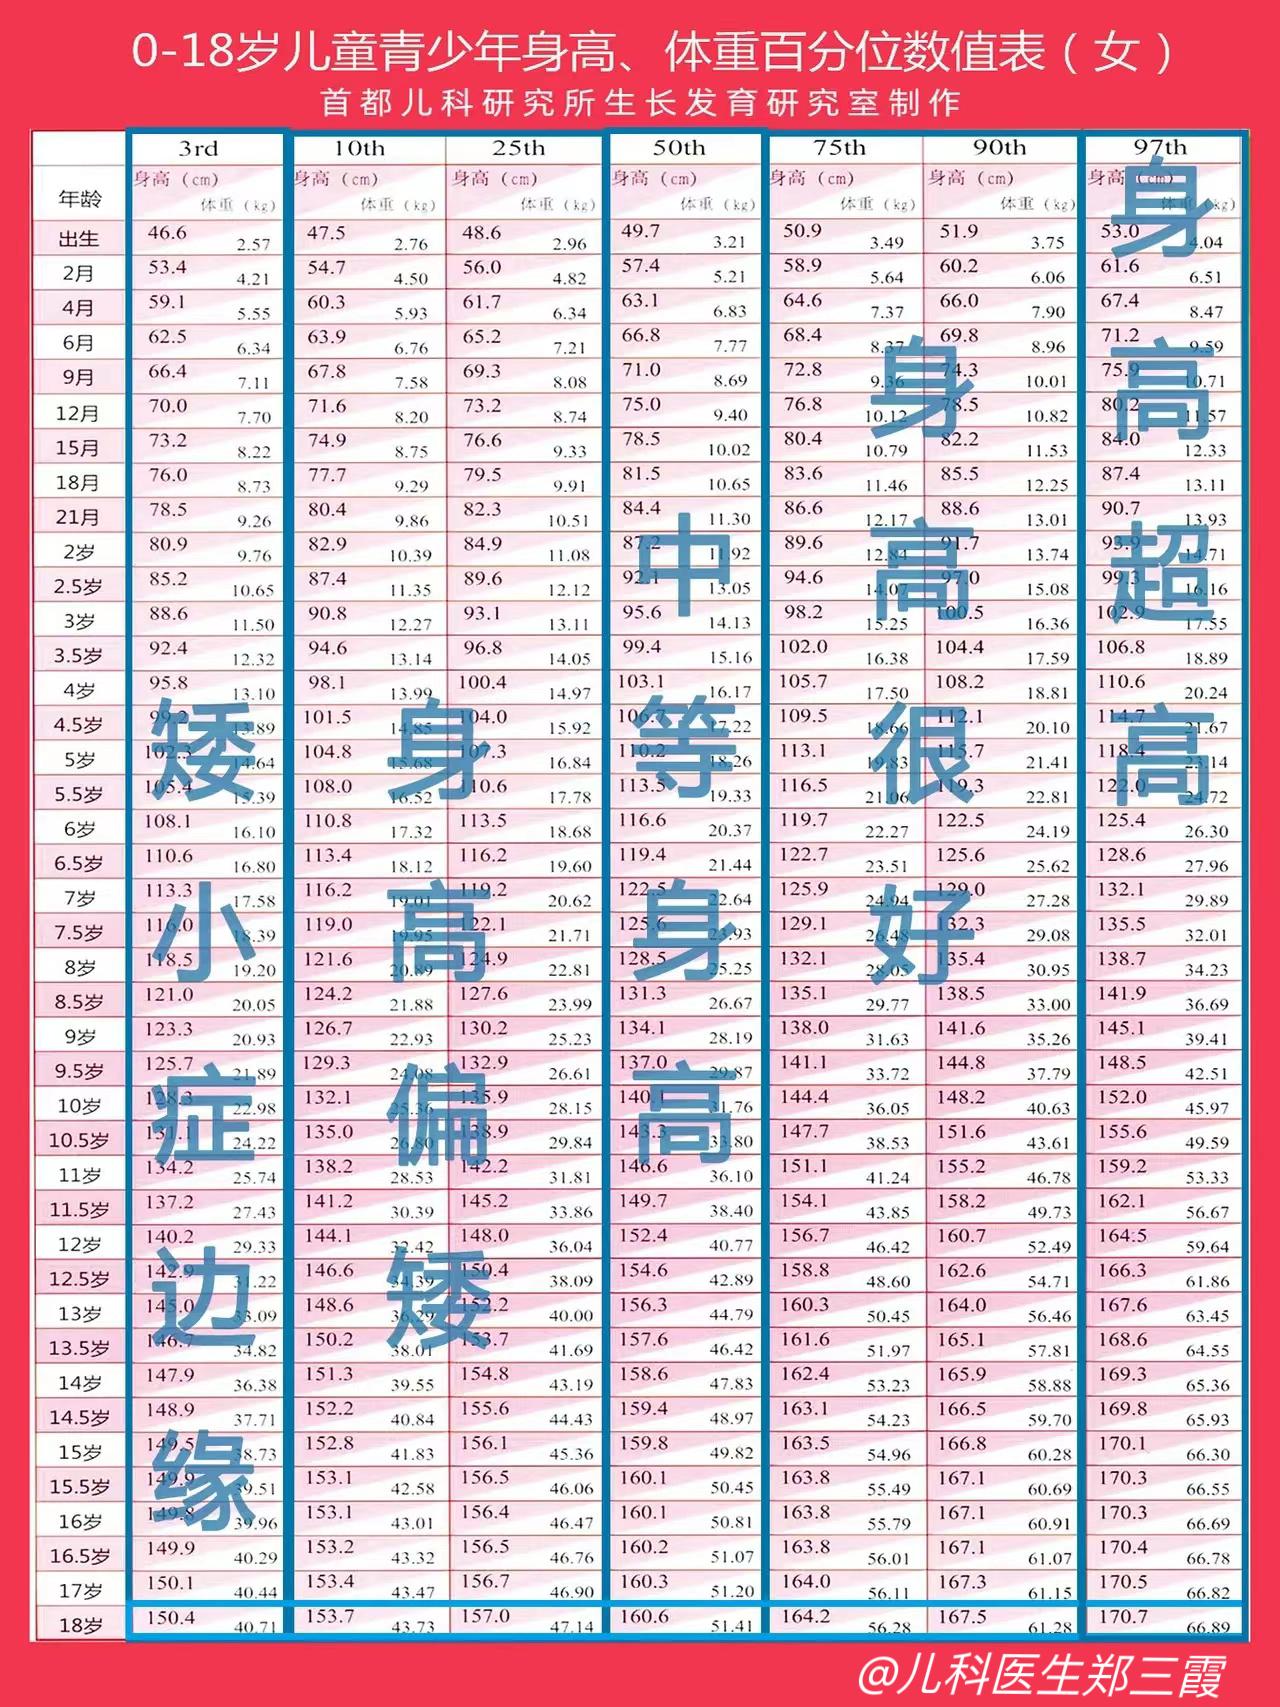 0-18岁儿童青少年身高、体重百分位数值表（女）
首都儿科研究所生长发育研究室制作
3rd 10th 25th 50th 75th 90th 97th
年龄 身高 (cm) 体重 (kg) 身高 (cm) 体重 (kg) 身高 (cm) 体重 (kg) 身高 (cm) 体重 (kg) 身高 (cm) 体重 (kg) 身高 (cm) 体重 (kg) 身高 (cm) 体重 (kg)
出生 46.6 2.57 47.5 2.76 48.6 2.96 49.7 3.21 50.9 3.49 51.9 3.75 53.0 4.04
2月 53.4 4.21 54.7 4.50 56.0 4.82 57.4 5.21 58.9 5.64 60.2 6.06 61.6 6.51
4月 59.1 5.55 60.3 5.93 61.7 6.34 63.1 6.83 64.6 7.37 66.0 7.90 67.4 8.47
6月 62.5 6.34 63.9 6.76 65.2 7.21 66.8 7.77 68.4 8.37 69.8 8.96 71.2 9.59
9月 66.4 7.11 67.8 7.58 69.3 8.08 71.0 8.69 72.8 9.36 74.3 10.01 75.9 10.71
12月 70.0 7.70 71.6 8.20 73.2 8.74 75.0 9.40 76.8 10.12 78.5 10.82 80.2 11.57
15月 73.2 8.22 74.9 8.75 76.6 9.33 78.5 10.02 80.4 10.79 82.2 11.53 84.0 12.33
18月 76.0 8.73 77.7 9.29 79.5 9.91 81.5 10.65 83.6 11.46 85.5 12.25 87.4 13.11
21月 78.5 9.26 80.4 9.86 82.3 10.51 84.4 11.30 86.6 12.17 88.6 13.01 90.7 13.93
2岁 80.9 9.76 82.9 10.39 84.9 11.08 87.2 11.92 89.6 12.84 91.7 13.74 93.9 14.71
2.5岁 85.2 10.65 87.4 11.35 89.6 12.12 92.1 13.05 94.6 14.07 97.0 15.08 99.3 16.16
3岁 88.6 11.50 90.8 12.27 93.1 13.11 95.6 14.13 98.2 15.25 100.5 16.36 102.9 17.55
3.5岁 92.4 12.32 94.6 13.14 96.8 14.05 99.4 15.16 102.0 16.38 104.4 17.59 106.8 18.89
4岁 95.8 13.10 98.1 13.99 100.4 14.97 103.1 16.17 105.7 17.50 108.2 18.81 110.6 20.24
4.5岁 99.2 13.89 101.5 14.85 104.0 15.92 106.7 17.22 109.5 18.66 112.1 20.10 114.7 21.67
5岁 102.3 14.64 104.8 15.68 107.3 16.84 110.2 18.26 113.1 19.83 115.7 21.41 118.4 23.14
5.5岁 105.4 15.39 108.0 16.52 110.6 17.78 113.5 19.33 116.5 21.06 119.3 22.81 122.0 24.72
6岁 108.1 16.10 110.8 17.32 113.5 18.68 116.6 20.37 119.7 22.27 122.5 24.19 125.4 26.30
6.5岁 110.6 16.80 113.4 18.12 116.2 19.60 119.4 21.44 122.7 23.51 125.6 25.62 128.6 27.96
7岁 113.3 17.58 116.2 19.01 119.2 20.62 122.5 22.64 125.9 24.94 129.0 27.28 132.1 29.89
7.5岁 116.0 18.39 119.0 19.95 122.1 21.71 125.6 23.93 129.1 26.48 132.3 29.08 135.5 32.01
8岁 118.5 19.20 121.6 20.89 124.9 22.81 128.5 25.25 132.1 28.05 135.4 30.95 138.7 34.23
8.5岁 121.0 20.05 124.2 21.88 127.6 23.99 131.3 26.67 135.1 29.77 138.5 33.00 141.9 36.69
9岁 123.3 20.93 126.7 22.93 130.2 25.23 134.1 28.19 138.0 31.63 141.6 35.26 145.1 39.41
9.5岁 125.7 21.89 129.3 24.08 132.9 26.61 137.0 29.87 141.1 33.72 144.8 37.79 148.5 42.51
10岁 128.3 22.98 132.1 25.36 135.9 28.15 140.1 31.76 144.4 36.05 148.2 40.63 152.0 45.97
10.5岁 131.1 24.22 135.0 26.80 138.9 29.84 143.3 33.80 147.7 38.53 151.6 43.61 155.6 49.59
11岁 134.2 25.74 138.2 28.53 142.2 31.81 146.6 36.10 151.1 41.24 155.2 46.78 159.2 53.33
11.5岁 137.2 27.43 141.2 30.39 145.2 33.86 149.7 38.40 154.1 43.85 158.2 49.73 162.1 56.67
12岁 140.2 29.33 144.1 32.42 148.0 36.04 152.4 40.77 156.7 46.42 160.7 52.49 164.5 59.64
12.5岁 142.9 31.22 146.6 34.39 150.4 38.09 154.6 42.89 158.8 48.60 162.6 54.71 166.3 61.86
13岁 145.0 33.09 148.6 36.29 152.2 40.00 156.3 44.79 160.3 50.45 164.0 56.46 167.6 63.45
13.5岁 146.7 34.82 150.2 38.01 153.7 41.69 157.6 46.42 161.6 51.97 165.1 57.81 168.6 64.55
14岁 147.9 36.38 151.3 39.55 154.8 43.19 158.6 47.83 162.4 53.23 165.9 58.88 169.3 65.36
14.5岁 148.9 37.71 152.2 40.84 155.6 44.43 159.4 48.97 163.1 54.23 166.5 59.70 169.8 65.93
15岁 149.5 38.73 152.8 41.83 156.1 45.36 159.8 49.82 163.5 54.96 166.8 60.28 170.1 66.30
15.5岁 149.9 39.51 153.1 42.58 156.5 46.06 160.1 50.45 163.8 55.49 167.1 60.69 170.3 66.55
16岁 149.8 39.96 153.1 43.01 156.4 46.47 160.1 50.81 163.8 55.79 167.1 60.91 170.3 66.69
16.5岁 149.9 40.29 153.2 43.32 156.5 46.76 160.2 51.07 163.8 56.01 167.1 61.07 170.4 66.78
17岁 150.1 40.44 153.4 43.47 156.7 46.90 160.3 51.20 164.0 56.11 167.3 61.15 170.5 66.82
18岁 150.4 40.71 153.7 43.73 157.0 47.14 160.6 51.41 164.2 56.28 167.5 61.28 170.7 66.89
矮小症边缘
身高偏矮
中等身高
身高很好
身高超高
@儿科医生郑三霞